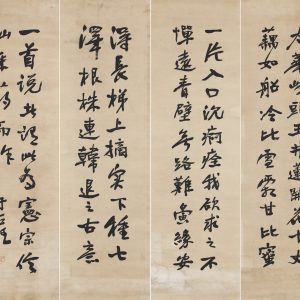 太華峰頭玉井蓮開花十丈
藕如船冷比雪霜甘比蜜
一片入口沈痾痊我欲求之不
憚遠青壁無路難夤緣安
得長梯上摘實下種七
澤根株連韓退之古意
一首說者謂此為憲宗信
仙采藥而作 于右任